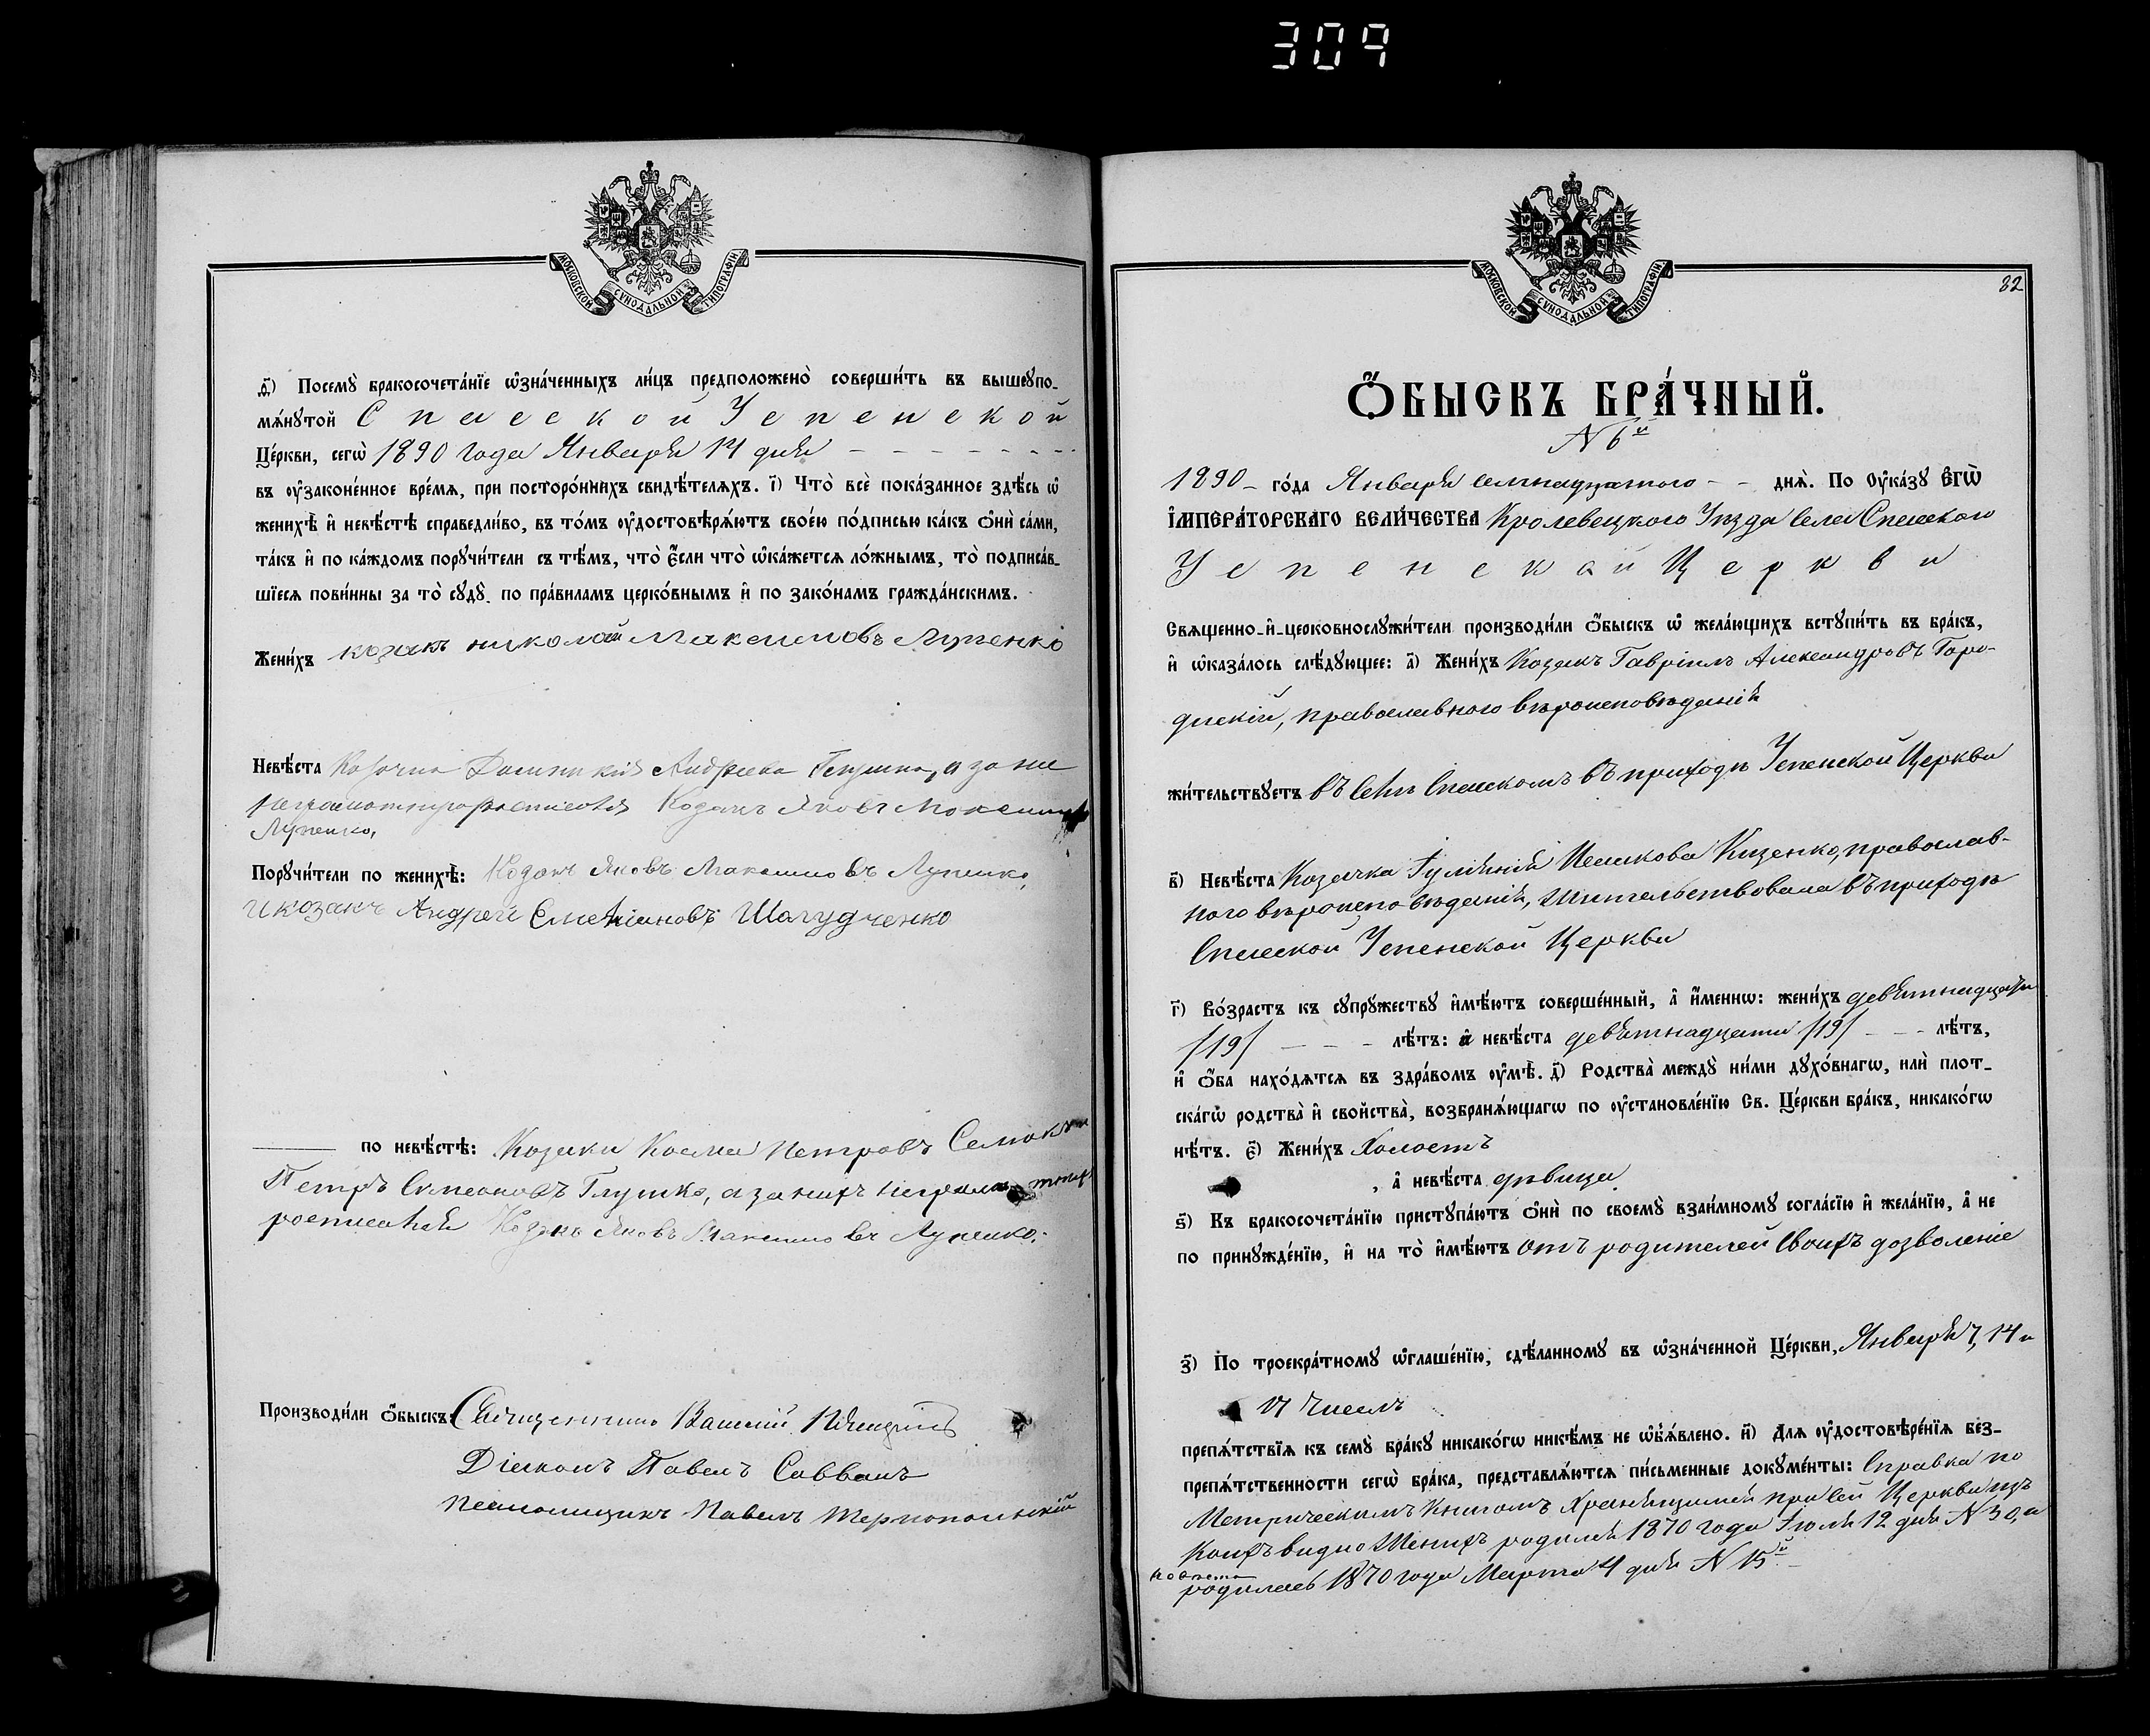 309
МОСКОВСКОЙ СУНОДАЛЬНОЙ ТИПОГРАФІИ
д҃) Посемꙋ̀ бракосочета́нїе ѡ҆зна́ченныхъ ли́цъ предположено̀ соверши́ть въ вышеꙋпо-
мѧ́нꙋтой Спасской Успенской
Це́ркви, сегѡ̀ 1890 года Января 14 дня
въ ᲂу҆законе́нное вре́мѧ, при посторо́ннихъ свидѣ́телѧхъ. і҃) Что̀ всѐ пока́занное здѣ́сь ѡ҆
женихѣ̀ и҆ невѣ́стѣ справедли́во, въ то́мъ ᲂу҆достовѣрѧ́ютъ свое́ю по́дписью ка́къ ѻ҆нѝ са́ми,
та́къ и҆ по ка́ждомъ порꙋчи́тели съ тѣ́мъ, что̀ є҆́сли что̀ ѡ҆ка́жетсѧ ло́жнымъ, то̀ подписа́в-
шїесѧ пови́нны за то̀ сꙋдꙋ̀ по пра́виламъ церко́внымъ и҆ по зако́намъ гражда́нскимъ.
Жени́хъ козакъ николай Максимовъ Лупенко
Невѣ́ста Козачка Андреева Глушко, а за нее
неграмотную росписался Козакъ Яковъ Максимовъ
Лупенко,
Порꙋчи́тели по женихѣ̀: Козакъ Яковъ Максимовъ Лупенко,
и козакъ Андрей Шалудченко
по невѣ́стѣ: Козаки Косма Петровъ
Петръ Симеоновъ Глушко, а за нихъ неграмотныхъ
росписался Козакъ Яковъ Максимовъ Лупенко.
Производи́ли ѻ҆́быскъ: Священникъ Василій
Діаконъ Павелъ Саввичъ
Псаломщикъ Павелъ Тернопольскій
МОСКОВСКОЙ СУНОДАЛЬНОЙ ТИПОГРАФІИ
82
Ѻ҆́БЫСКЪ БРА́ЧНЫЙ.
N 6й
1890 го́да Января семнадцатого днѧ̀. По Оу҆ка́зꙋ Є҆гѡ̀
І҆МПЕРА́ТОРСКАГО ВЕЛИ́ЧЕСТВА Кролевецкого Уѣзда села Спасского
Успенской Церкви
Свѧщенно-и҆-церковнослꙋжи́тели производи́ли ѻ҆́быскъ ѡ҆ жела́ющихъ встꙋпи́ть въ бра́къ,
и҆ ѡ҆каза́лось слѣ́дꙋющее: а҃) Жени́хъ Козакъ Гавріилъ Александровъ Горо-
дискій, православного вѣроисповѣданія
жи́тельствꙋетъ въ селѣ Спасскомъ въ приходѣ Успенской Церкви
в҃) Невѣ́ста Козачка Іуліанія Исакова Кизенко, православ-
ного вѣроисповѣданія, жительствовала въ приходѣ
Спасской Успенской Церкви
г҃) Во́зрастъ къ сꙋпрꙋ́жествꙋ и҆мѣ́ютъ соверше́нный, а҆ и҆́меннѡ: жени́хъ девятнадцати
/19/ лѣ́тъ: а҆ невѣ́ста девятнадцати /19/ лѣ́тъ,
и҆ ѻ҆́ба нахо́дѧтсѧ въ здра́вомъ ᲂу҆мѣ̀. д҃) Родства̀ междꙋ̀ ни́ми дꙋхо́внагѡ, илѝ плот-
ска́гѡ родства̀ и҆ свойства̀, возбранѧ́ющагѡ по ᲂу҆становле́нїю Св. Це́ркви бра́къ, никако́гѡ
нѣ́тъ. є҃) Жени́хъ Холостъ
, а҆ невѣ́ста дѣвица
ѕ҃) Къ бракосочета́нїю пристꙋпа́ютъ ѻ҆нѝ по своемꙋ̀ взаи́мномꙋ согла́сїю и҆ жела́нїю, а҆ не
по принꙋжде́нїю, и҆ на то̀ и҆мѣ́ютъ отъ родителей своихъ дозволеніе
з҃) По троекра́тномꙋ ѡ҆глаше́нїю, сдѣ́ланномꙋ въ ѡ҆зна́ченной Це́ркви, Января 7, 14 и
17 чиселъ
препѧ́тствїѧ къ семꙋ̀ бра́кꙋ никако́гѡ никѣ́мъ не ѡ҆б̾ѧ́влено. и҃) Длѧ ᲂу҆достовѣре́нїѧ без-
препѧ́тственности сегѡ̀ бра́ка, представлѧ́ютсѧ пи́сьменные докꙋме́нты: Справка по
Метрическимъ Книгамъ хранящимся при сей Церкви изъ
коихъ видно женихъ родился 1870 года Іюля 12 дня N 30, а
невѣста
родилась 1870 года Марта 4 дня N 15й